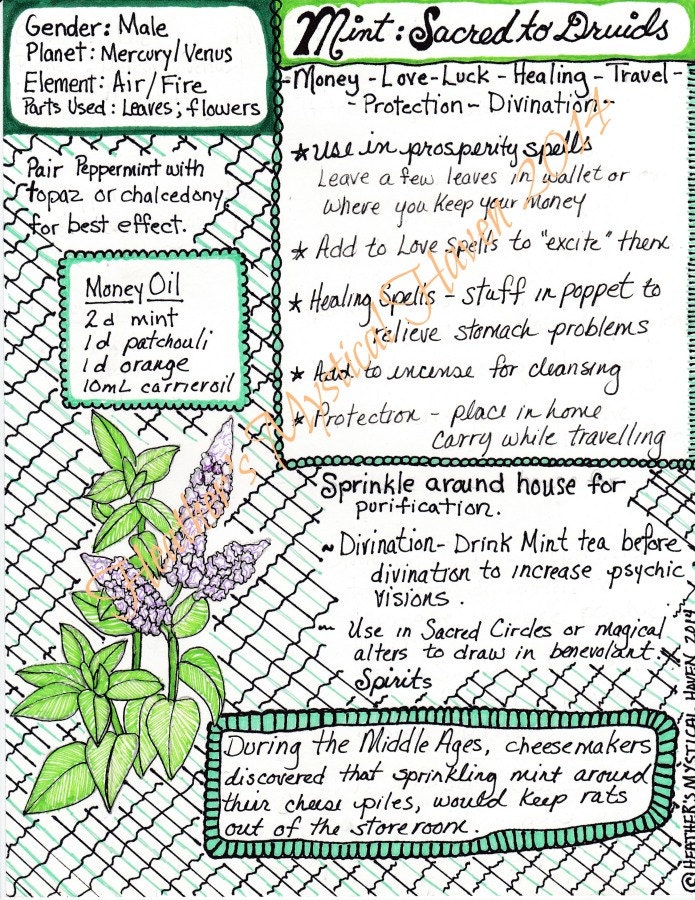 Gender: Male
Planet: Mercury/Venus
Element: Air/Fire
Parts Used: Leaves; flowers
Mint: Sacred to Druids
-Money-Love-Luck-Healing-Travel-
-Protection-Divination-
Pair Peppermint with
topaz or chalcedony
for best effect.
Money Oil
2d mint
1d patchouli
1d orange
10mL carrier oil
★ Use in prosperity spells
Leave a few leaves in wallet or
where you keep your money
★ Add to Love Spells to "excite" them
★ Healing Spells - stuff in poppet to
relieve stomach problems
★ Add to incense for cleansing
★ Protection - place in home
carry while travelling
Sprinkle around house for
purification.
~ Divination- Drink Mint tea before
divination to increase psychic
visions.
~ Use in Sacred Circles or magical
alters to draw in benevolant
Spirits
During the Middle Ages, cheesemakers
discovered that sprinkling mint around
their cheese piles, would keep rats
out of the storeroom.
Heather's Mystical Haven 2014
© HEATHER'S MYSTICAL HAVEN 2014